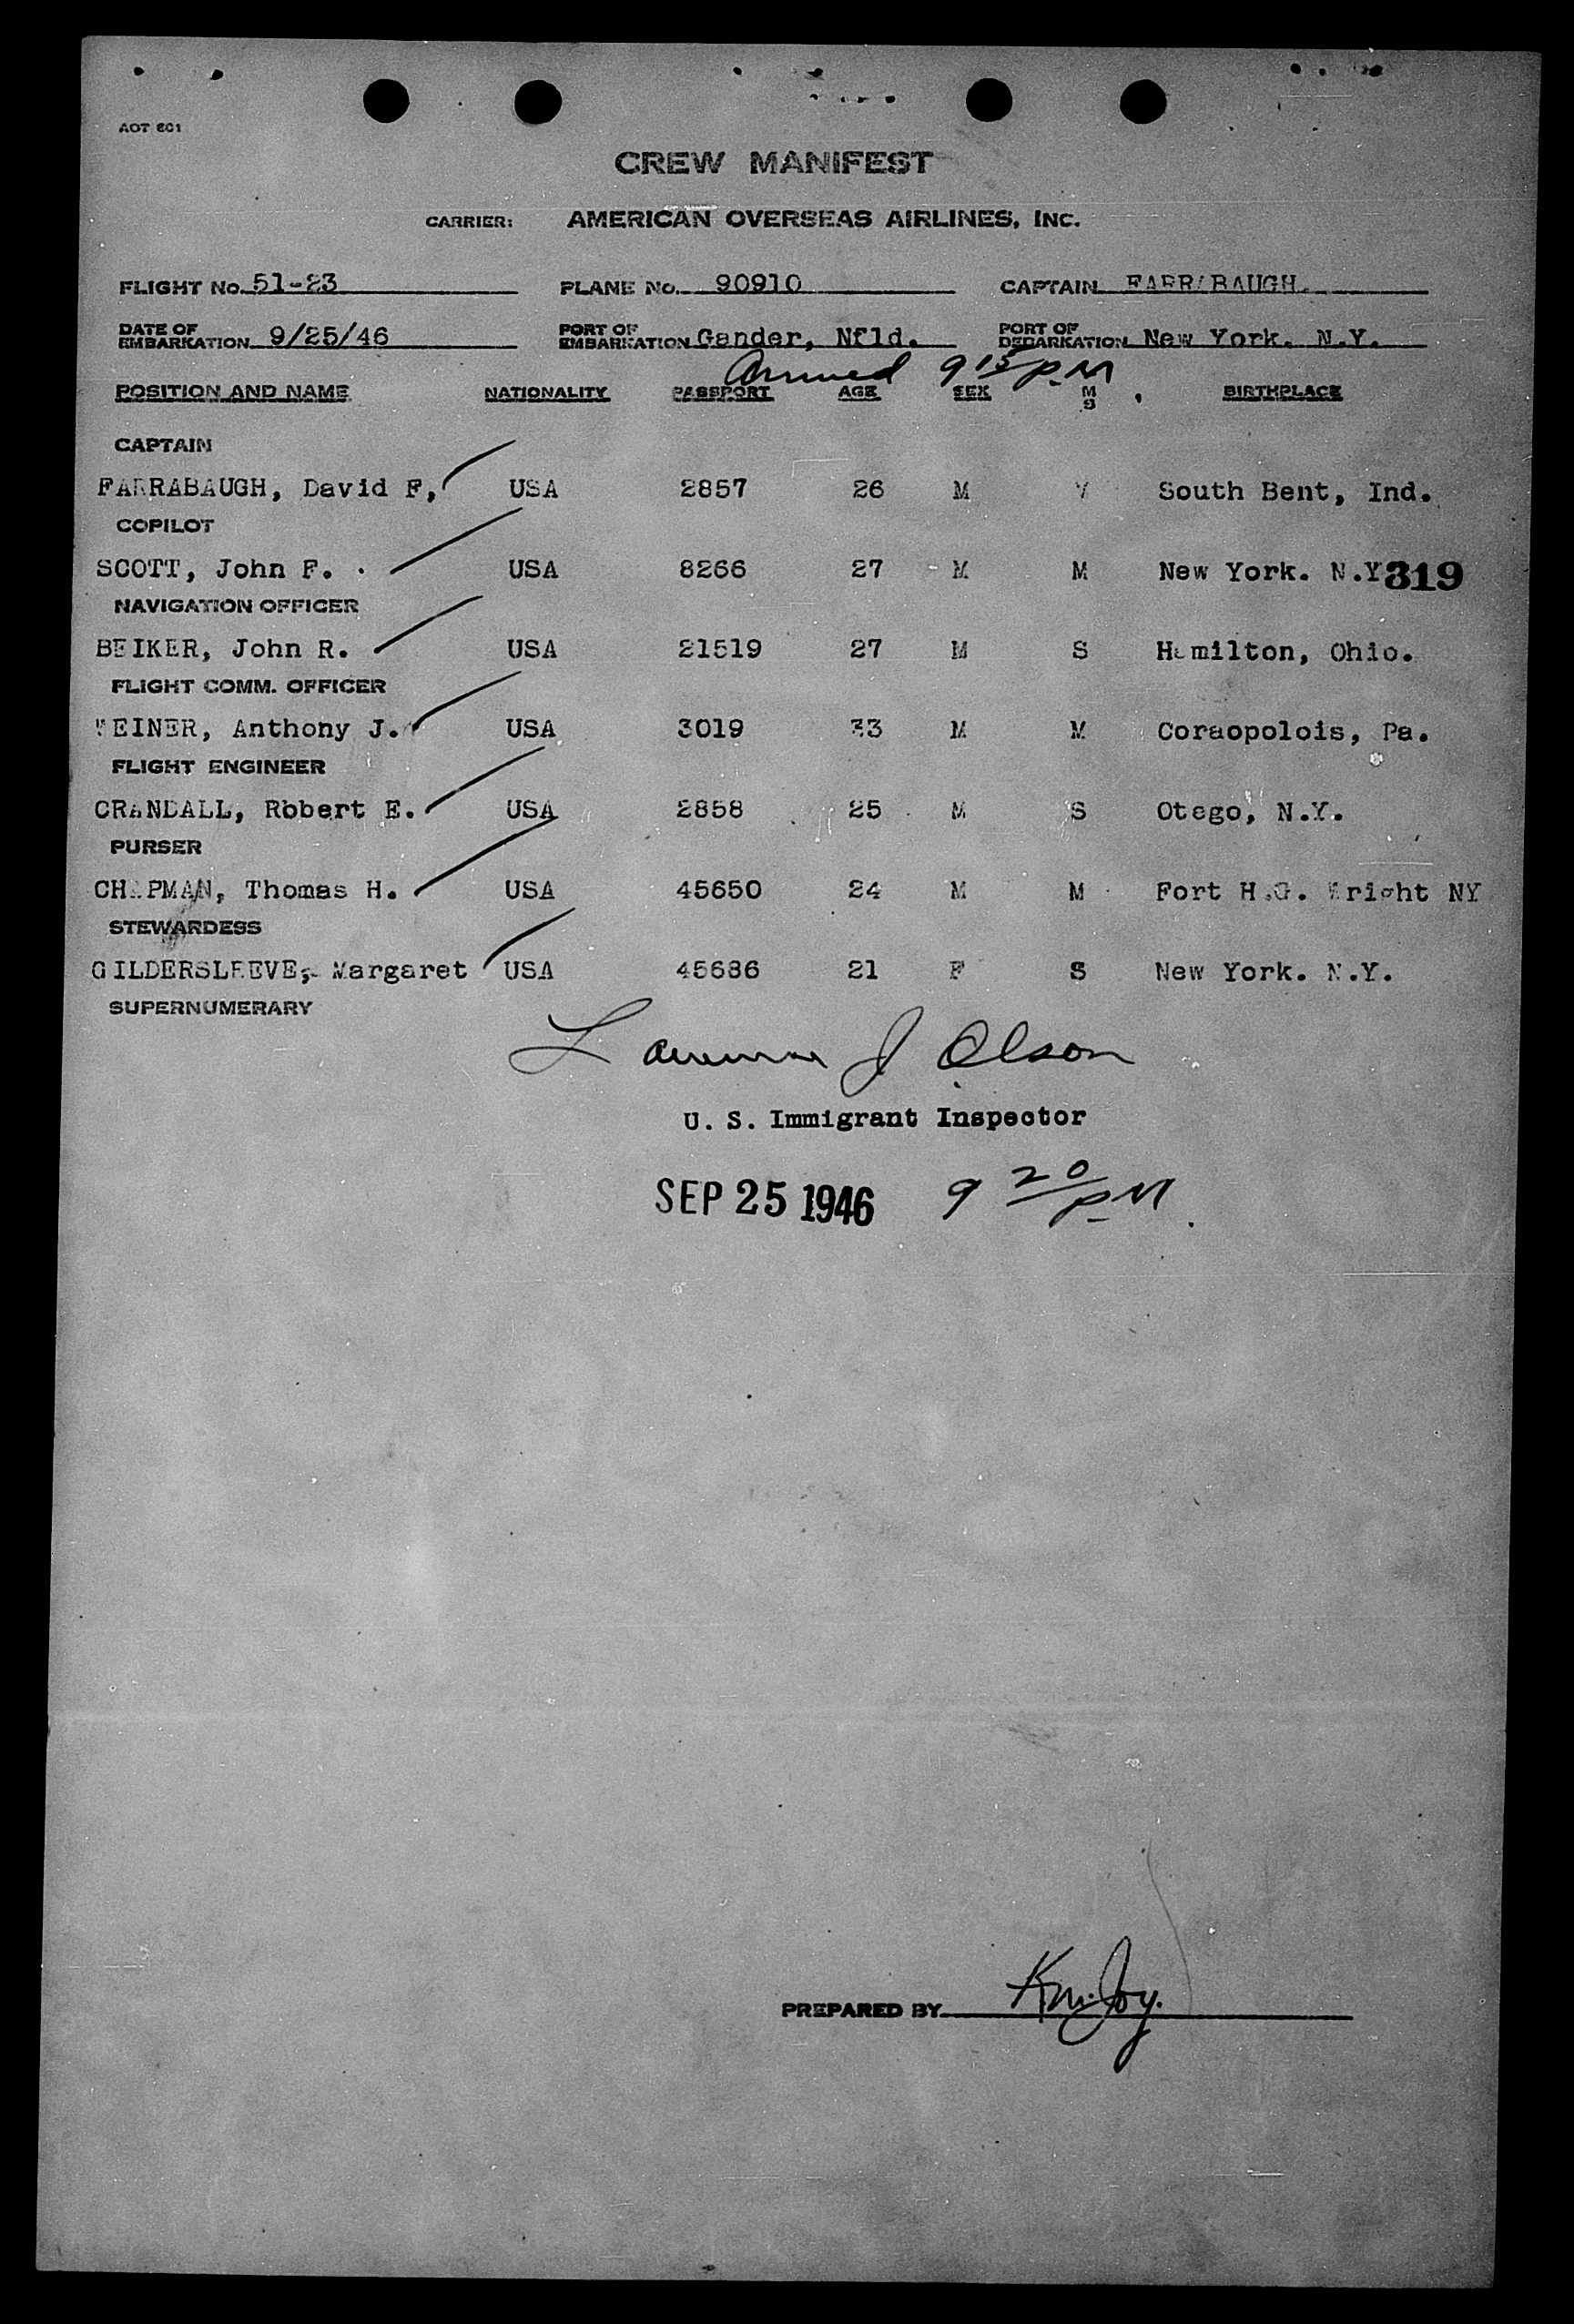 AOT 601
CREW MANIFEST
CARRIER: AMERICAN OVERSEAS AIRLINES, INC.
FLIGHT NO. 51-23 PLANE NO. 90910 CAPTAIN FARRABAUGH.
DATE OF EMBARKATION 9/25/46 PORT OF EMBARKATION Gander, Nfld. PORT OF DEBARKATION New York. N.Y.
Arrived 9 15 P.M
POSITION AND NAME NATIONALITY PASSPORT AGE SEX M S BIRTHPLACE
CAPTAIN
FARRABAUGH, David F, USA 2857 26 M South Bent, Ind.
COPILOT
SCOTT, John F. USA 8266 27 M M New York. N.Y 319
NAVIGATION OFFICER
BEIKER, John R. USA 21519 27 M S Hamilton, Ohio.
FLIGHT COMM. OFFICER
WEINER, Anthony J. USA 3019 33 M M Coraopolois, Pa.
FLIGHT ENGINEER
CRANDALL, Robert E. USA 2858 25 M S Otego, N.Y.
PURSER
CHAPMAN, Thomas H. USA 45650 24 M M Fort H.G. Wright NY
STEWARDESS
GILDERSLEEVE, Margaret USA 45686 21 F S New York. N.Y.
SUPERNUMERARY
Lawrence J Olson
U. S. Immigrant Inspector
SEP 25 1946 9 20 PM
PREPARED BY K.M. Joy.